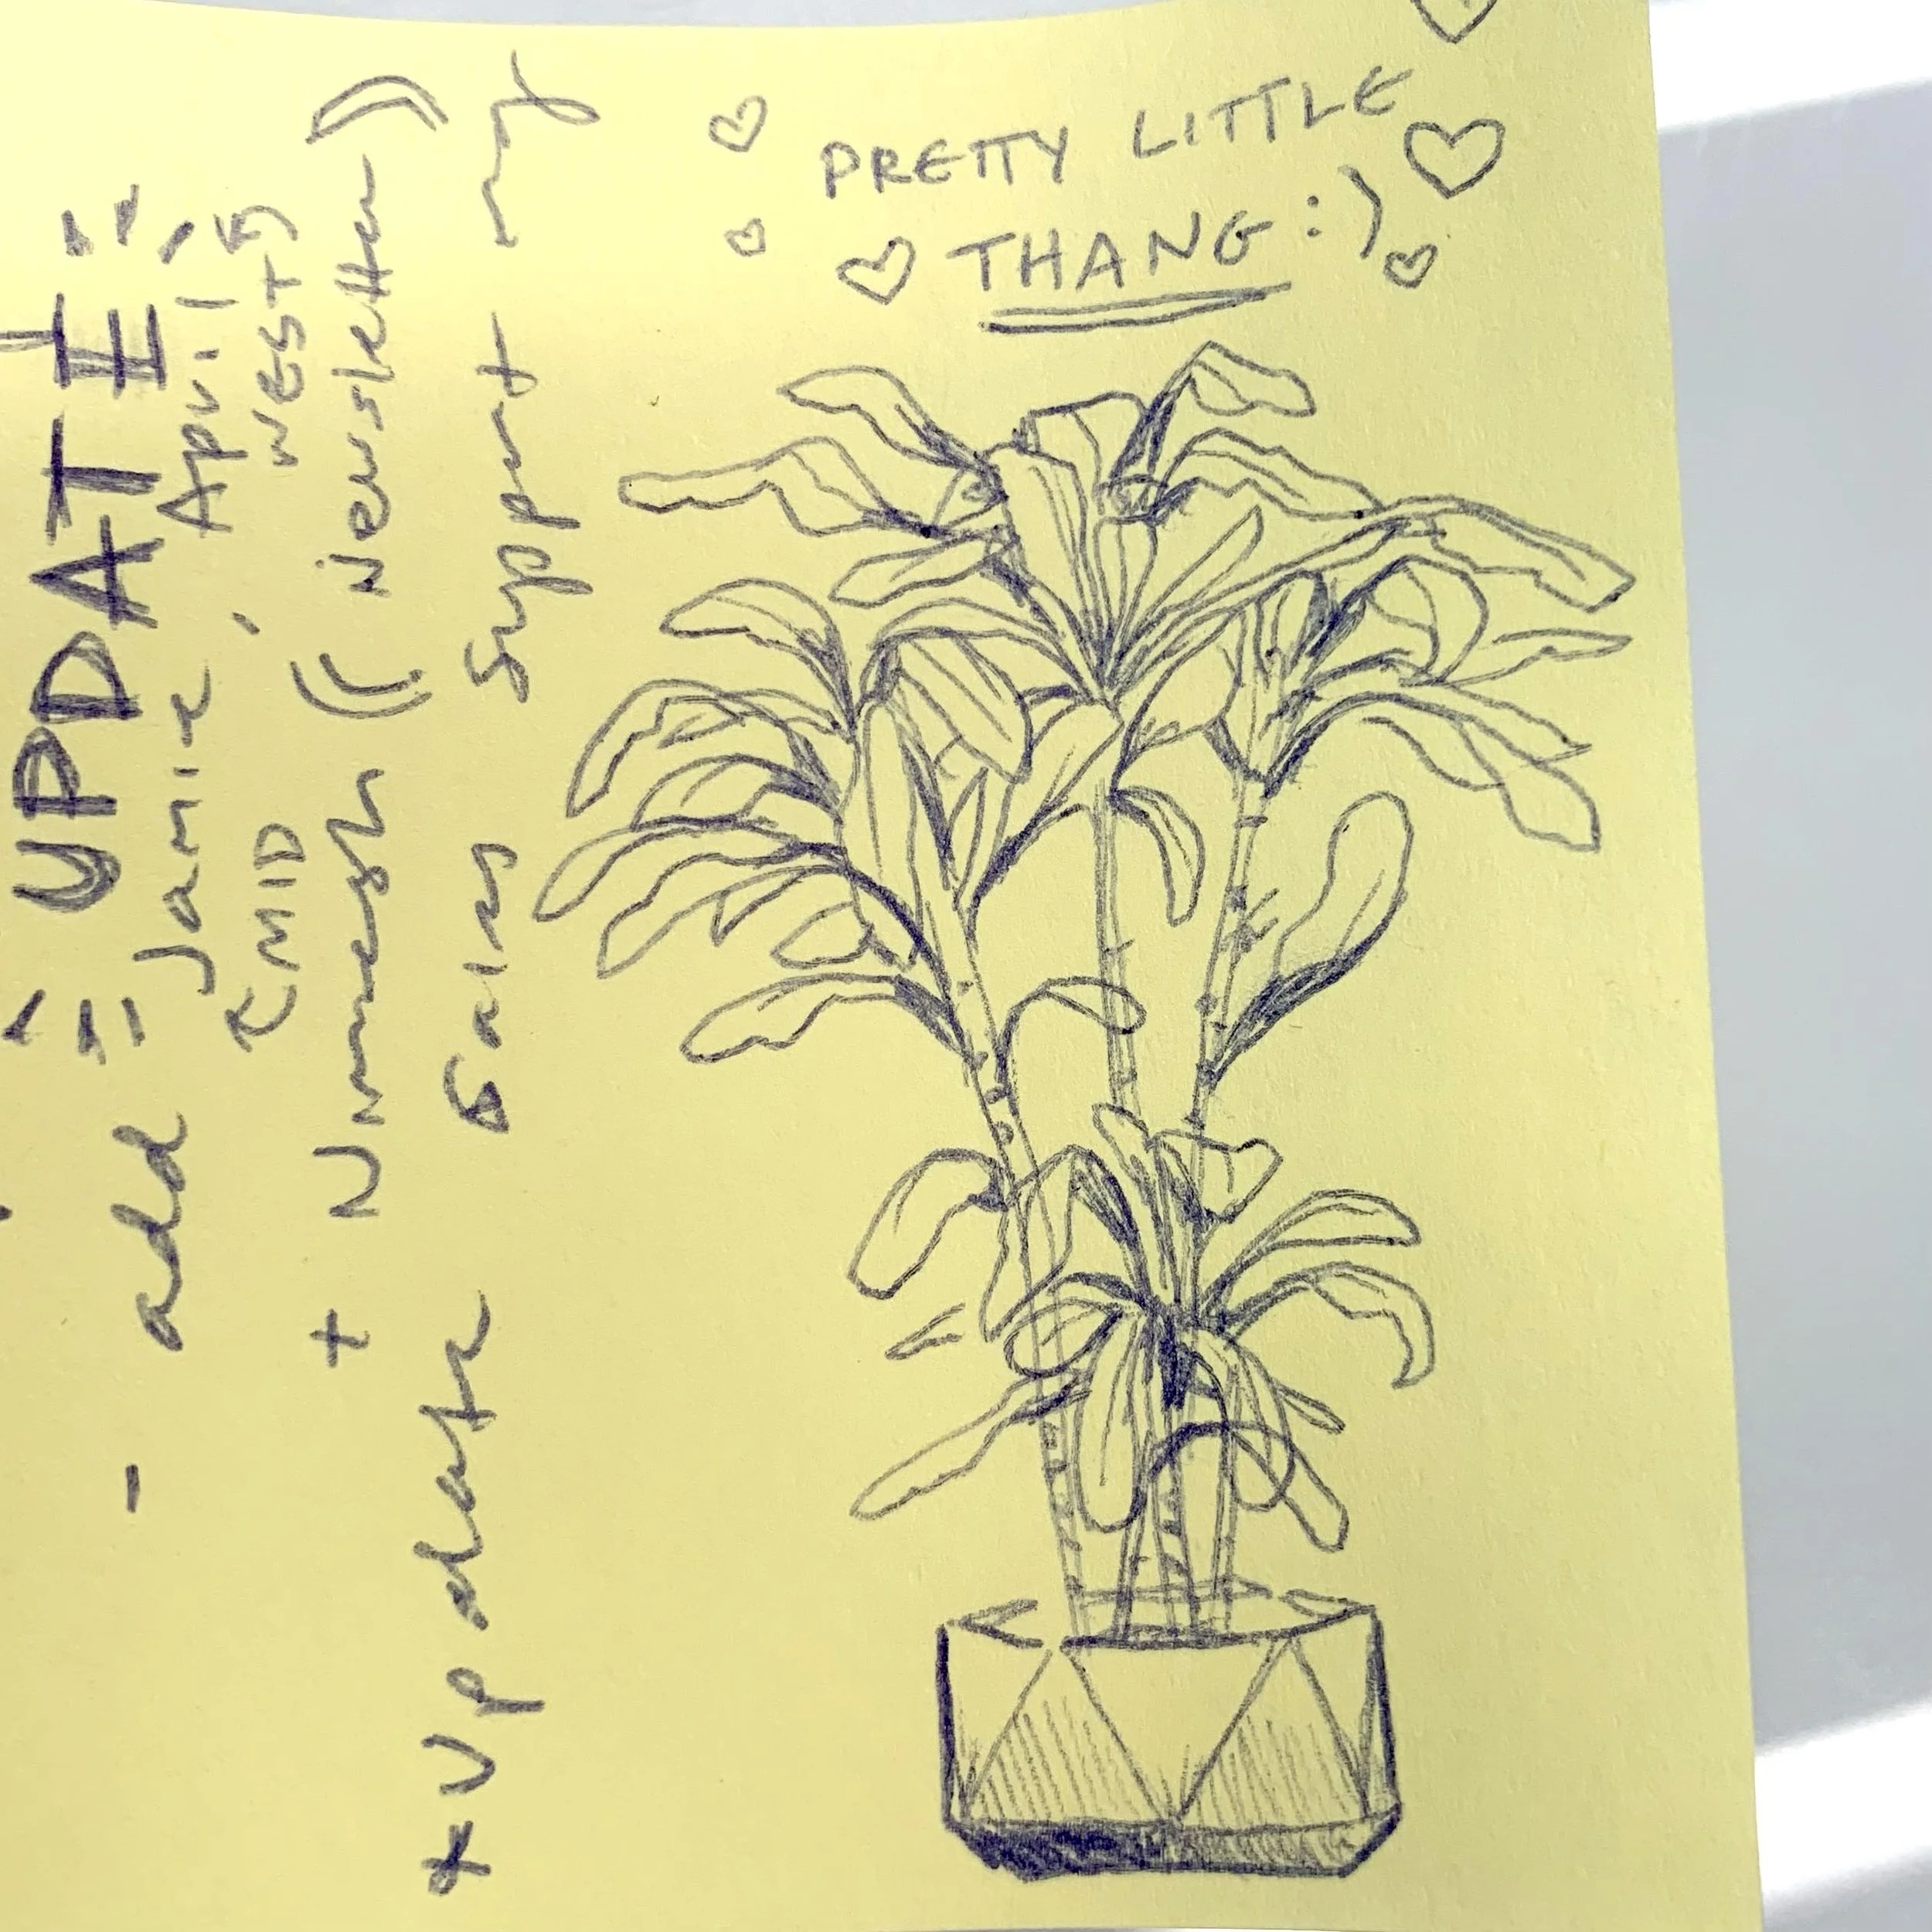 PRETTY LITTLE
THANG :)
UPDATE
- add = Jamie, April,
(MID WEST)
+ Nimesh (( Newsletter))
* Update Sales Support